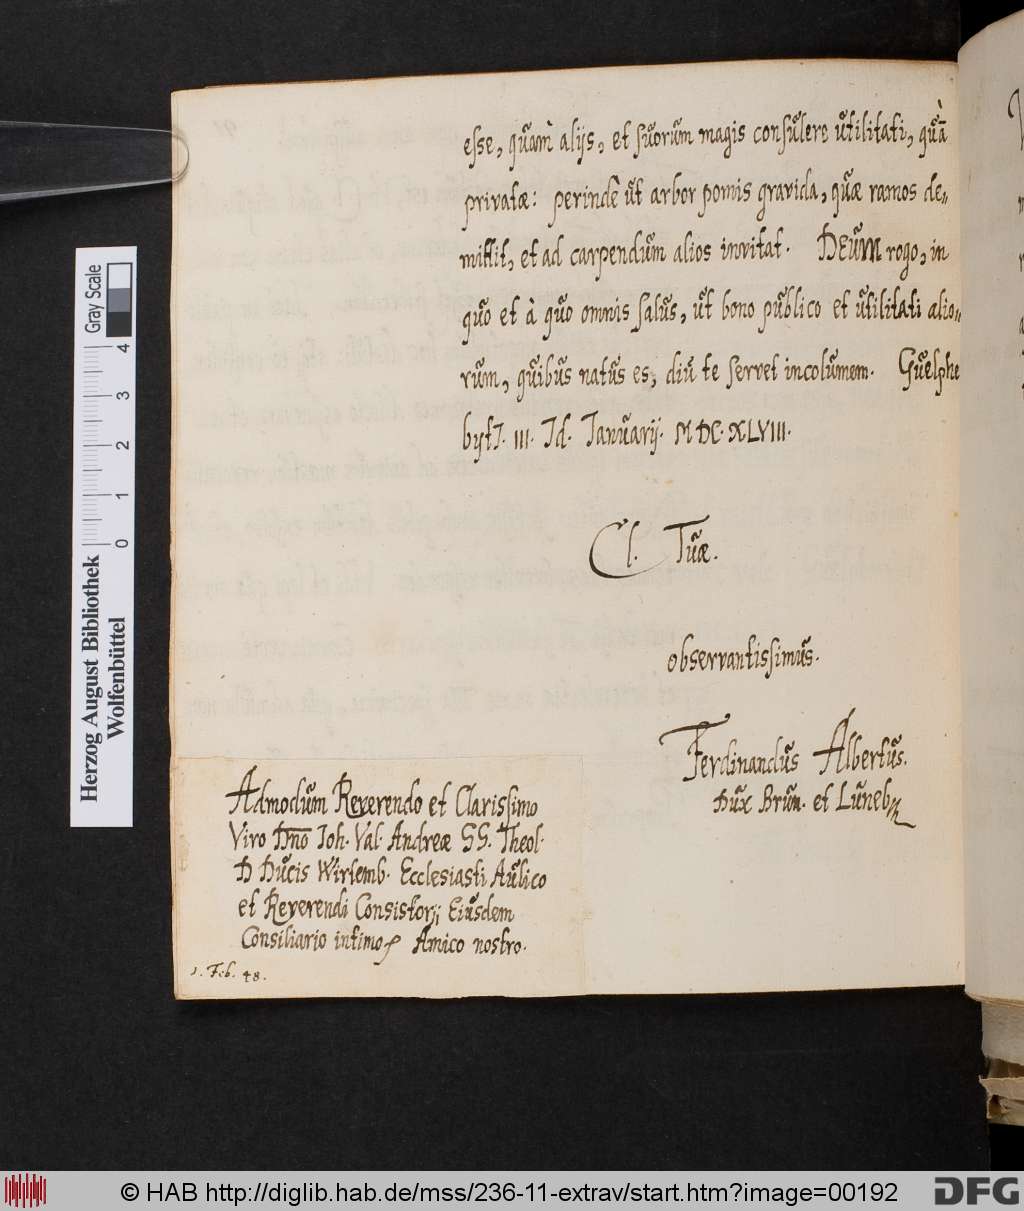 esse, quam alijs, et suorum magis consulere utilitati, quã
privatæ: perinde ut arbor pomis gravida, quæ ramos de-
mittit, et ad carpendum alios invitat. DEUM rogo, in
quo et à quo omnis salus, ut bono publico et utilitati alio-
rum, quibus natus es, diu te servet incolumem. Guelphe
byti. III. Id. Januarij. MDC.XLVIII.
Cl. Tuæ.
observantissimus.
Ferdinandus Albertus.
Dux Brun. et Luneb
Admodum Reverendo et Clarissimo
Viro Dno Joh. Val. Andreæ SS. Theol.
D Ducis Wirtemb. Ecclesiasti Aulico
et Reverendi Consistorij Eiusdem
Consiliario intimo Amico nostro.
1. Feb. 48.
Herzog August Bibliothek
Wolfenbüttel
0 1 2 3 4
Gray Scale
© HAB http://diglib.hab.de/mss/236-11-extrav/start.htm?image=00192
DFG